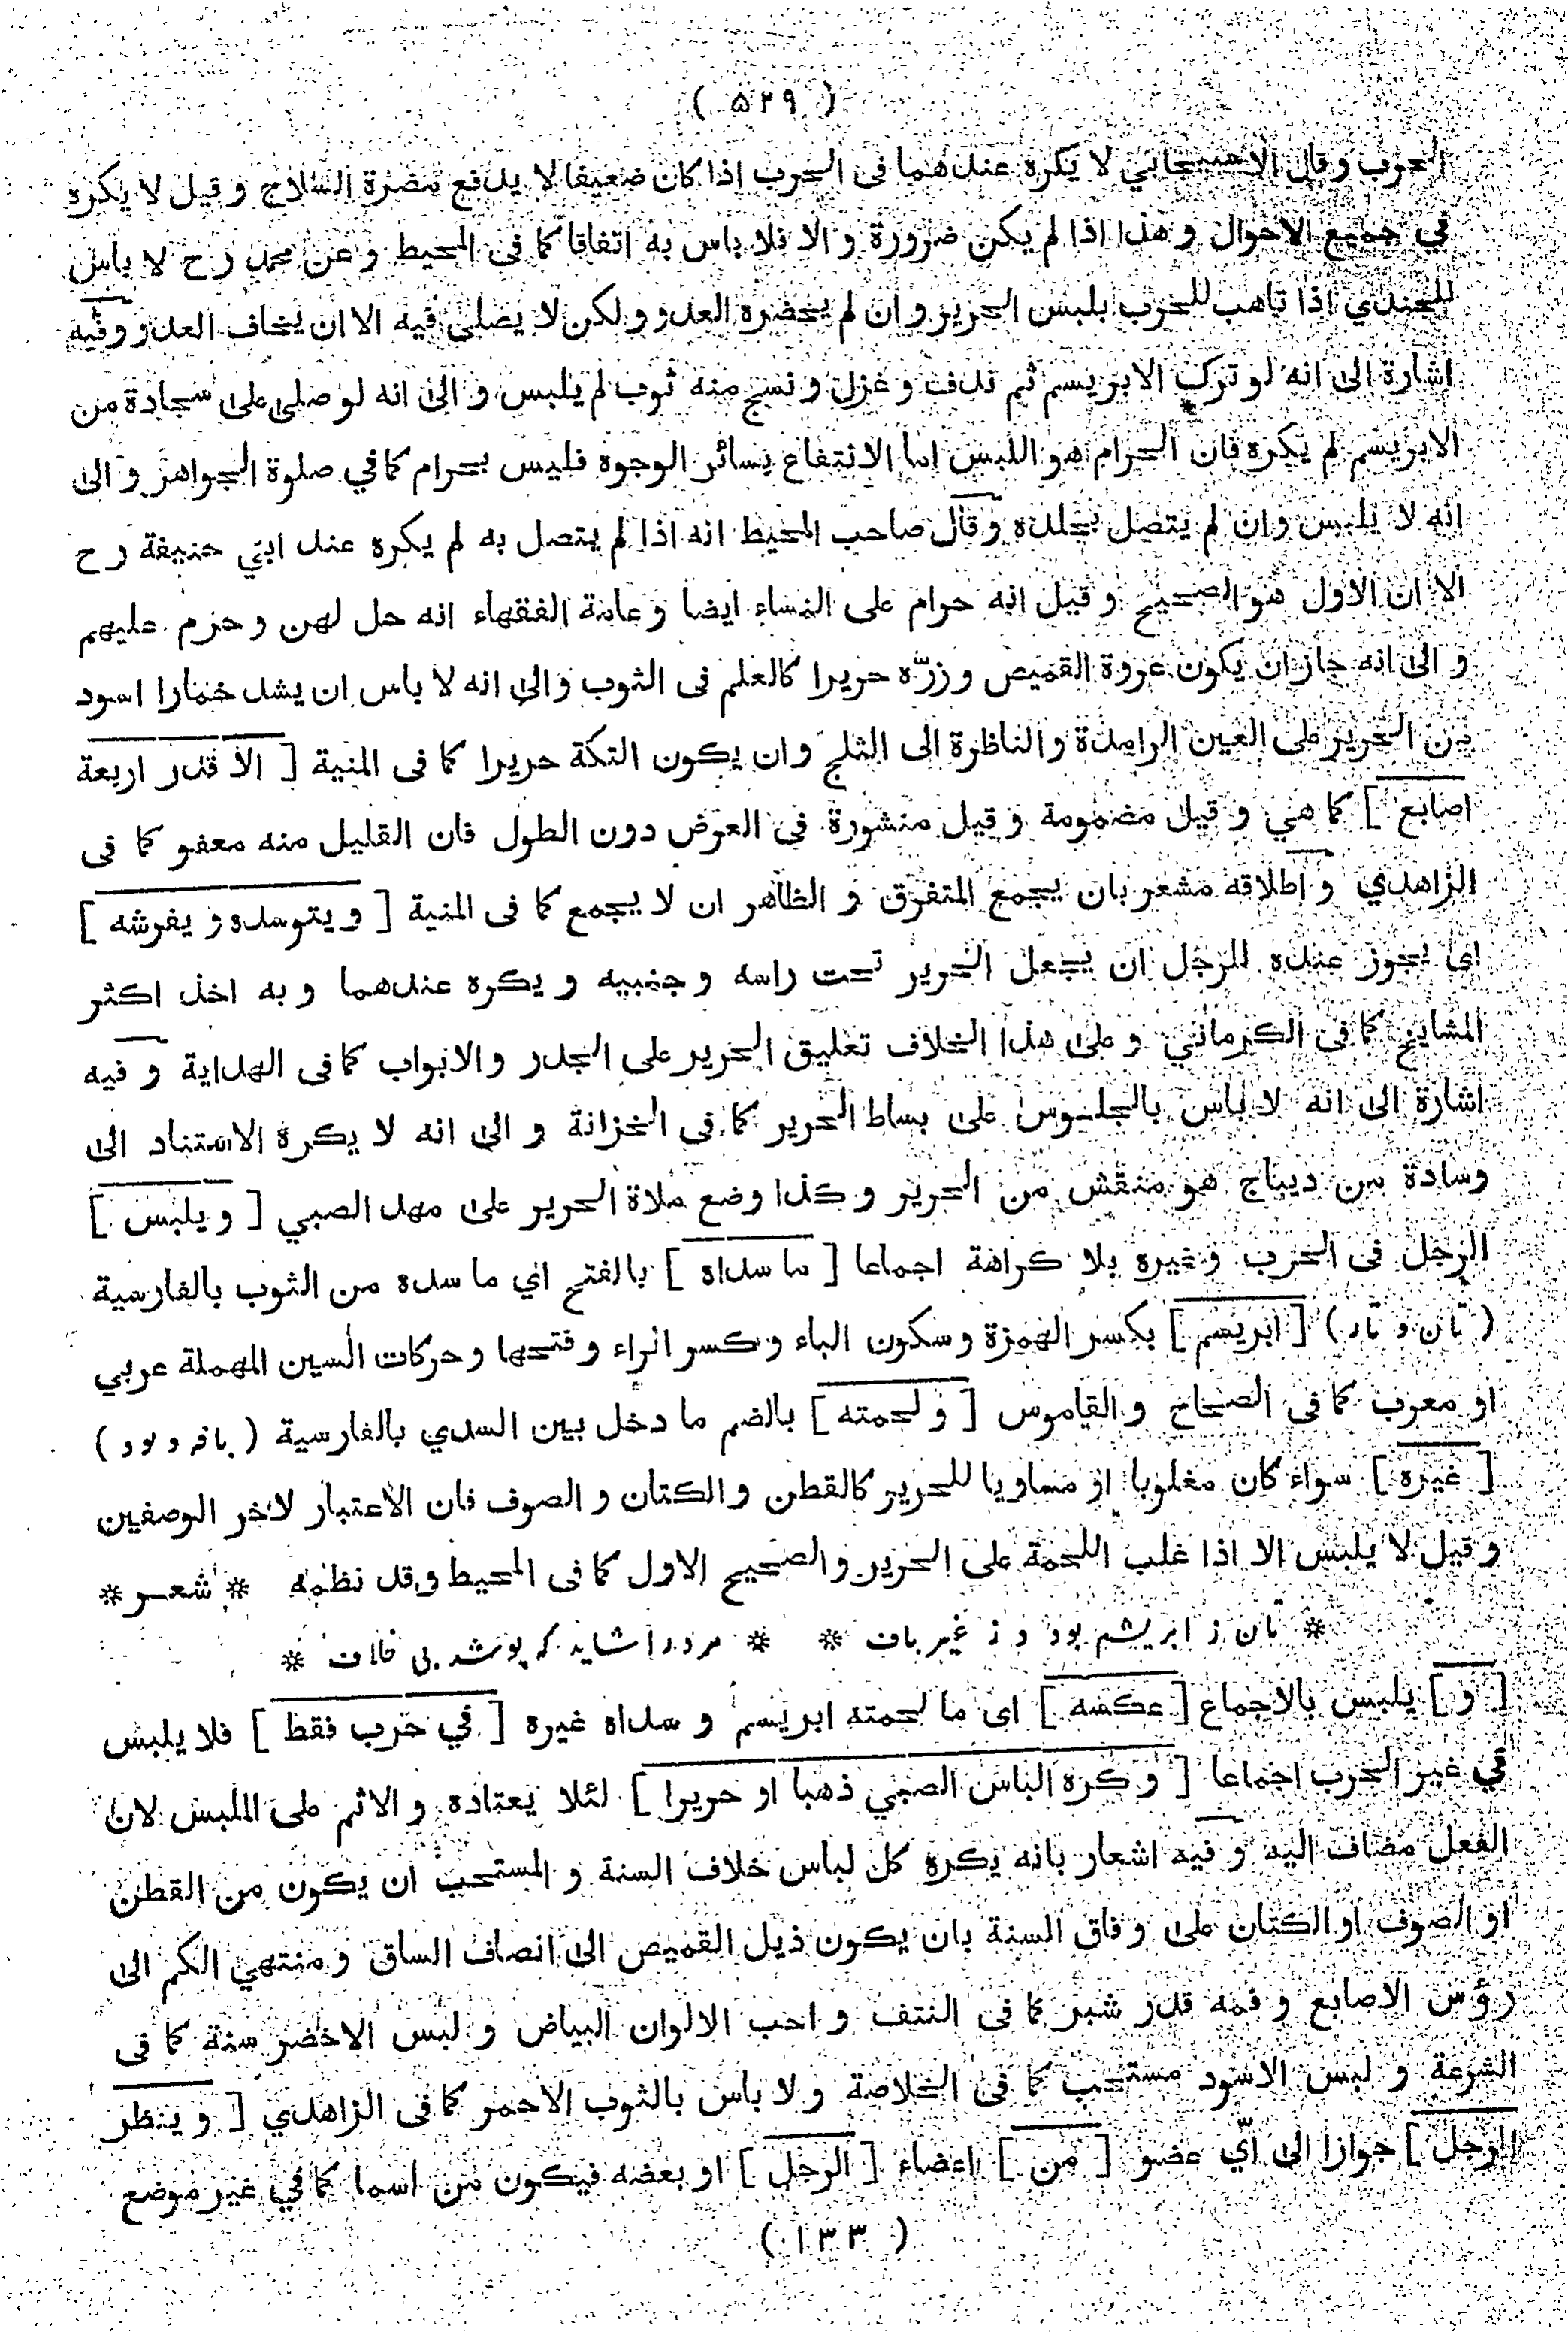 ( ۵۲۹ )
الحرب وقال الاسبيجابي لا يكره عندهما فى الحرب اذا كان ضعيفا لا يدفع مضرة السلاح و قيل لا يكره
في جميع الاحوال و هذا اذا لم يكن ضرورة و الا فلا باس به اتفاقا كما فى المحيط و عن محمد رح لا باس
للجندي اذا تاهب للحرب بلبس الحرير و ان لم يحضره العدو و لكن لا يصلى فيه الا ان يخاف العدو و فيه
اشارة الى انه لو ترك الابريسم ثم ندف و غزل و نسج منه ثوب لم يلبس و الى انه لو صلى على سجادة من
الابريسم لم يكره فان الحرام هو اللبس اما الانتفاع بسائر الوجوه فليس بحرام كما في صلوة الجواهر و الى
انه لا يلبس وان لم يتصل بجلده و قال صاحب المحيط انه اذا لم يتصل به لم يكره عند ابي حنيفة رح
الا ان الاول هو الصحيح و قيل انه حرام على النساء ايضا و عامة الفقهاء انه حل لهن و حرم عليهم
و الى انه جاز ان يكون عروة القميص و زرّه حريرا كالعلم فى الثوب و الى انه لا باس ان يشد خمارا اسود
من الحرير على العين الرامدة و الناظرة الى الثلج و ان يكون التكة حريرا كما فى المنية [ الا قدر اربعة
اصابع ] كما هي و قيل مضمومة و قيل منشورة فى العرض دون الطول فان القليل منه معفو كما فى
الزاهدي و اطلاقه مشعر بان يجمع المتفرق و الظاهر ان لا يجمع كما فى المنية [ و يتوسده و يفرشه ]
اى يجوز عنده للرجل ان يجعل الحرير تحت راسه و جنبيه و يكره عندهما و به اخذ اكثر
المشايخ كما فى الكرماني و على هذا الخلاف تعليق الحرير على الجدر و الابواب كما فى الهداية و فيه
اشارة الى انه لا باس بالجلوس على بساط الحرير كما فى الخزانة و الى انه لا يكره الاستناد الى
وسادة من ديباج هو منقش من الحرير و كذا وضع ملاة الحرير على مهد الصبي [ و يلبس ]
الرجل فى الحرب و غيره بلا كراهة اجماعا [ ما سداه ] بالفتح اي ما سده من الثوب بالفارسية
( تان و تار ) [ ابريسم ] بكسر الهمزة و سكون الباء و كسر الراء و فتحها و حركات السين المهملة عربي
او معرب كما فى الصحاح و القاموس [ و لحمته ] بالضم ما دخل بين السدي بالفارسية ( بافه و پود )
[ غيره ] سواء كان مغلوبا او مساويا للحرير كالقطن و الكتان و الصوف فان الاعتبار لاخر الوصفين
و قيل لا يلبس الا اذا غلب اللحمة على الحرير و الصحيح الاول كما فى المحيط و قد نظمه * شعر *
* تان ز ابريشم بود و ز غير باف * * مرد را شايد كه پوشد بى خلاف *
[ و ] يلبس بالاجماع [ عكسه ] اى ما لحمته ابريسم و سداه غيره [ في حرب فقط ] فلا يلبس
في غير الحرب اجماعا [ و كره الباس الصبي ذهبا او حريرا ] لئلا يعتاده و الاثم على الملبس لان
الفعل مضاف اليه و فيه اشعار بانه يكره كل لباس خلاف السنة و المستحب ان يكون من القطن
او الصوف او الكتان على وفاق السنة بان يكون ذيل القميص الى انصاف الساق و منتهي الكم الى
رؤس الاصابع و فمه قدر شبر كما فى النتف و احب الالوان البياض و لبس الاخضر سنة كما فى
الشرعة و لبس الاسود مستحب كما فى الخلاصة و لا باس بالثوب الاحمر كما فى الزاهدي [ و ينظر
الرجل ] جوازا الى اّي عضو [ من ] اعضاء [ الرجل ] او بعضه فيكون من اسما كما في غير موضع
( ۱۳۳ )